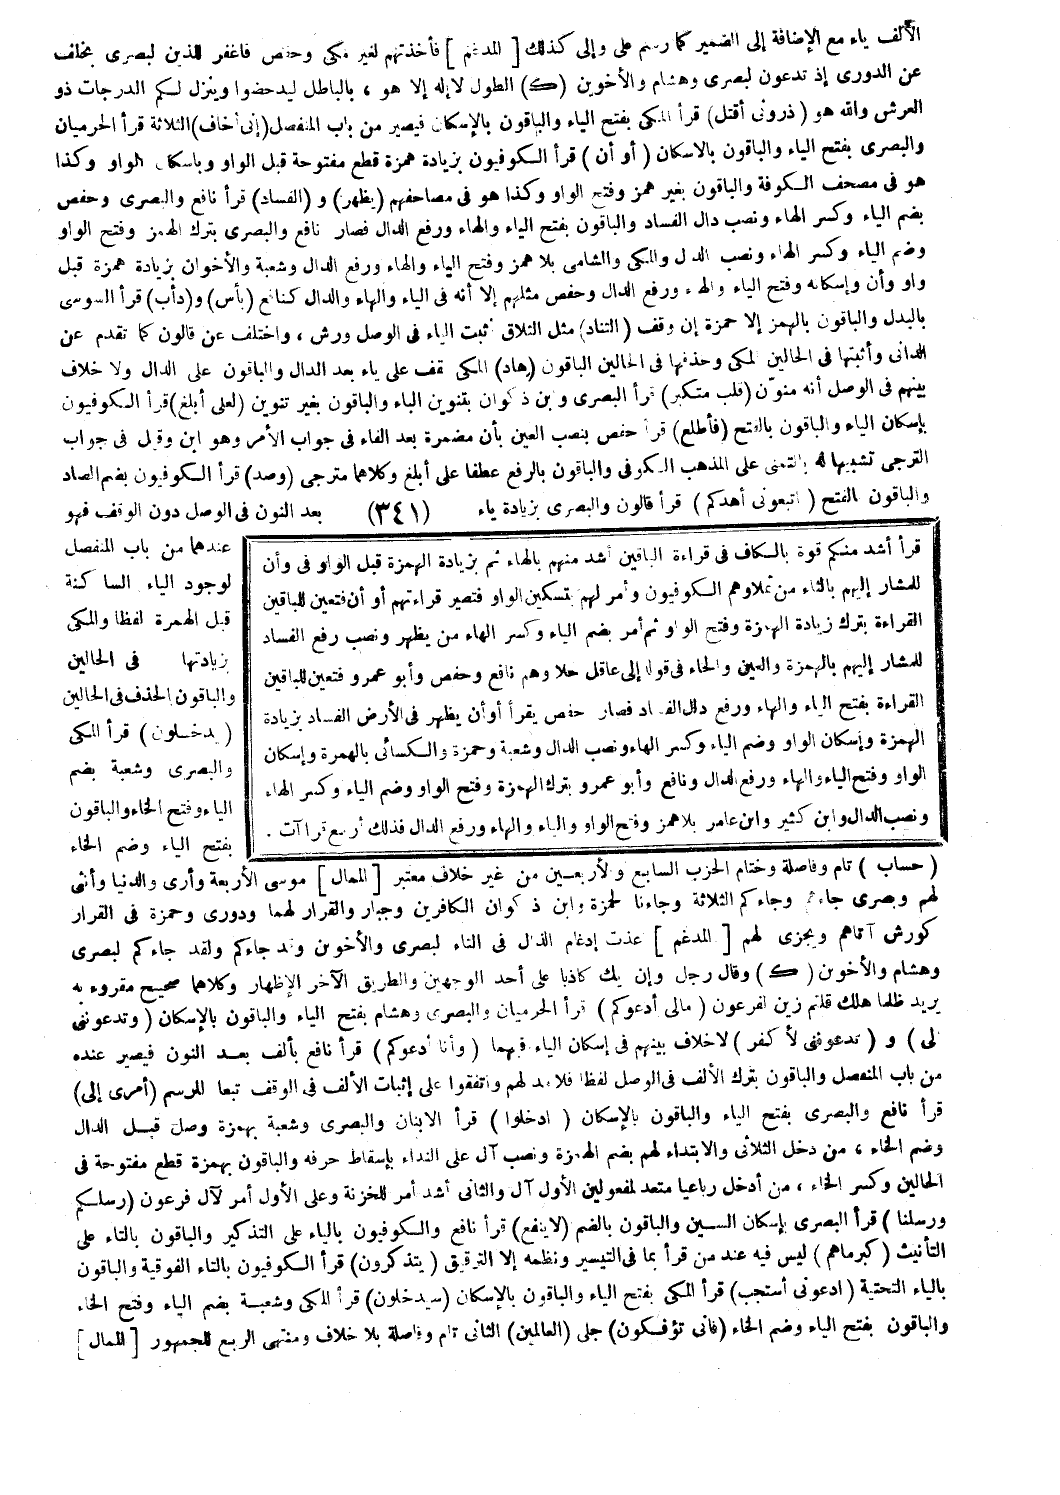 الألف ياء مع الإضافة إلى الضمير كما رسم على وإلى كذلك [ المدغم ] فأخذتهم لغير مكى وحفص فاغفر للذين لبصرى بخلف
عن الدورى إذ تدعون لبصرى وهشام والأخوين (ك) الطول لا إله إلا هو ، بالباطل ليدحضوا وينزل لكم الدرجات ذو
العرش والله هو ( ذرونى أقتل) قرأ المكى بفتح الياء والباقون بالإسكان فيصير من باب المنفصل (إنى أخاف) الثلاثة قرأ الحرميان
والبصرى بفتح الياء والباقون بالاسكان ( أو أن ) قرأ الكوفيون بزيادة همزة قطع مفتوحة قبل الواو وباسكان الواو وكذا
هو فى مصحف الكوفة والباقون بغير همز وفتح الواو وكذا هو فى مصاحفهم (يظهر) و (الفساد) قرأ نافع والبصرى وحفص
بضم الياء وكسر الهاء ونصب دال الفساد والباقون بفتح الياء والهاء ورفع الدال فصار نافع والبصرى بترك الهمز وفتح الواو
وضم الياء وكسر الهاء ونصب الدال والمكى والشامى بلا همز وفتح الياء والهاء ورفع الدال وشعبة والأخوان بزيادة همزة قبل
واو وأن وإسكانه وفتح الياء والهاء ورفع الدال وحفص مثلهم إلا أنه فى الياء والهاء والدال كنافع (بأس) و(دأب) قرأ السوسى
بالبدل والباقون بالهمز إلا حمزة إن وقف ( التناد) مثل التلاق أثبت الياء فى الوصل ورش ، واختلف عن قالون كما تقدم عن
الدانى وأثبتها فى الحالين المكى وحذفها فى الحالين الباقون (هاد) المكى يقف على ياء بعد الدال والباقون على الدال ولا خلاف
بينهم فى الوصل أنه منوّن (قلب متكبر) قرأ البصرى وابن ذكوان بتنوين الباء والباقون بغير تنوين (لعلى أبلغ) قرأ الكوفيون
بإسكان الياء والباقون بالفتح (فأطلع) قرأ حفص بنصب العين بأن مضمرة بعد الفاء فى جواب الأمر وهو ابن وقيل فى جواب
الترجى تشبيها له بالتمنى على المذهب الكوفى والباقون بالرفع عطفا على أبلغ وكلاهما مترجى (وصد) قرأ الكوفيون بضم الصاد
والباقون الفتح ( اتبعونى أهدكم ) قرأ قالون والبصرى بزيادة ياء (٣٤١) بعد النون فى الوصل دون الوقف فهو
عندهما من باب المنفصل
لوجود الياء الساكنة
قبل الهمزة لفظا والمكى
بزيادتها فى الحالين
والباقون الحذف فى الحالين
( يدخلون ) قرأ المكى
والبصرى وشعبة بضم
الياء وفتح الخاء والباقون
بفتح الياء وضم الخاء
قرأ أشد منكم قوة بالكاف فى قراءة الباقين أشد منهم بالهاء ثم بزيادة الهمزة قبل الواو فى وأن
للمشار إليهم بالثاء من ثملا وهم الكوفيون وأمر لهم بتسكين الواو فتصير قراءتهم أو أن فتعين للباقين
القراءة بترك زيادة الهمزة وفتح الواو ثم أمر بضم الياء وكسر الهاء من يظهر ونصب رفع الفساد
للمشار إليهم بالهمزة والعين والحاء فى قوله إلى عاقل حلا وهم نافع وحفص وأبو عمرو فتعين للباقين
القراءة بفتح الياء والهاء ورفع دال الفساد فصار حفص يقرأ أو أن يظهر فى الأرض الفساد بزيادة
الهمزة وإسكان الواو وضم الياء وكسر الهاء ونصب الدال وشعبة وحمزة والكسائى بالهمزة وإسكان
الواو وفتح الياء والهاء ورفع الدال ونافع وأبو عمرو بترك الهمزة وفتح الواو وضم الياء وكسر الهاء
ونصب الدال وابن كثير وابن عامر بلا همز وفتح الواو والياء والهاء ورفع الدال فذلك أربع قراآت .
( حساب ) تام وفاصلة وختام الحزب السابع والأربعين من غير خلاف معتبر [ الممال ] موسى الأربعة وأرى والدنيا وأنثى
لهم وبصرى جاءهم وجاءكم الثلاثة وجاءنا لحمزة وابن ذكوان الكافرين وجبار والقرار لهما ودورى وحمزة فى القرار
كورش آتاهم ويجزى لهم [ المدغم ] عذت إدغام الذال فى التاء لبصرى والأخوين وقد جاءكم ولقد جاءكم لبصرى
وهشام والأخوين ( ك ) وقال رجل وإن يك كاذبا على أحد الوجهين والطريق الآخر الإظهار وكلاهما صحيح مقروء به
يريد ظلما هلك قلتم زين لفرعون ( مالى أدعوكم ) قرأ الحرميان والبصرى وهشام بفتح الياء والباقون بالإسكان ( وتدعوننى
إلى ) و ( تدعوننى لأكفر ) لا خلاف بينهم فى إسكان الياء فيهما ( وأنا أدعوكم ) قرأ نافع بألف بعد النون فيصير عنده
من باب المنفصل والباقون بترك الألف فى الوصل لفظا فلا مد لهم واتفقوا على إثبات الألف فى الوقف تبعا للرسم (أمرى إلى)
قرأ نافع والبصرى بفتح الياء والباقون بالإسكان ( ادخلوا ) قرأ الابنان والبصرى وشعبة بهمزة وصل قبل الدال
وضم الخاء ، من دخل الثلاثى والابتداء لهم بضم الهمزة ونصب آل على النداء بإسقاط حرفه والباقون بهمزة قطع مفتوحة فى
الحالين وكسر الخاء ، من أدخل رباعيا متعد لمفعولين الأول آل والثانى أشد أمر للخزنة وعلى الأول أمر لآل فرعون (رسلكم
ورسلنا ) قرأ البصرى بإسكان السين والباقون بالضم (لاينفع) قرأ نافع والكوفيون بالياء على التذكير والباقون بالتاء على
التأنيث ( كبرماهم ) ليس فيه عند من قرأ بما فى التيسير ونظمه إلا الترقيق ( يتذكرون) قرأ الكوفيون بالتاء الفوقية والباقون
بالياء التحتية ( ادعونى أستجب) قرأ المكى بفتح الياء والباقون بالإسكان (سيدخلون) قرأ المكى وشعبة بضم الياء وفتح الخاء
والباقون بفتح الياء وضم الخاء (فأنى تؤفكون) جلى (العالمين) الثانى تام وفاصلة بلا خلاف ومنتهى الربع للجمهور [ الممال ]